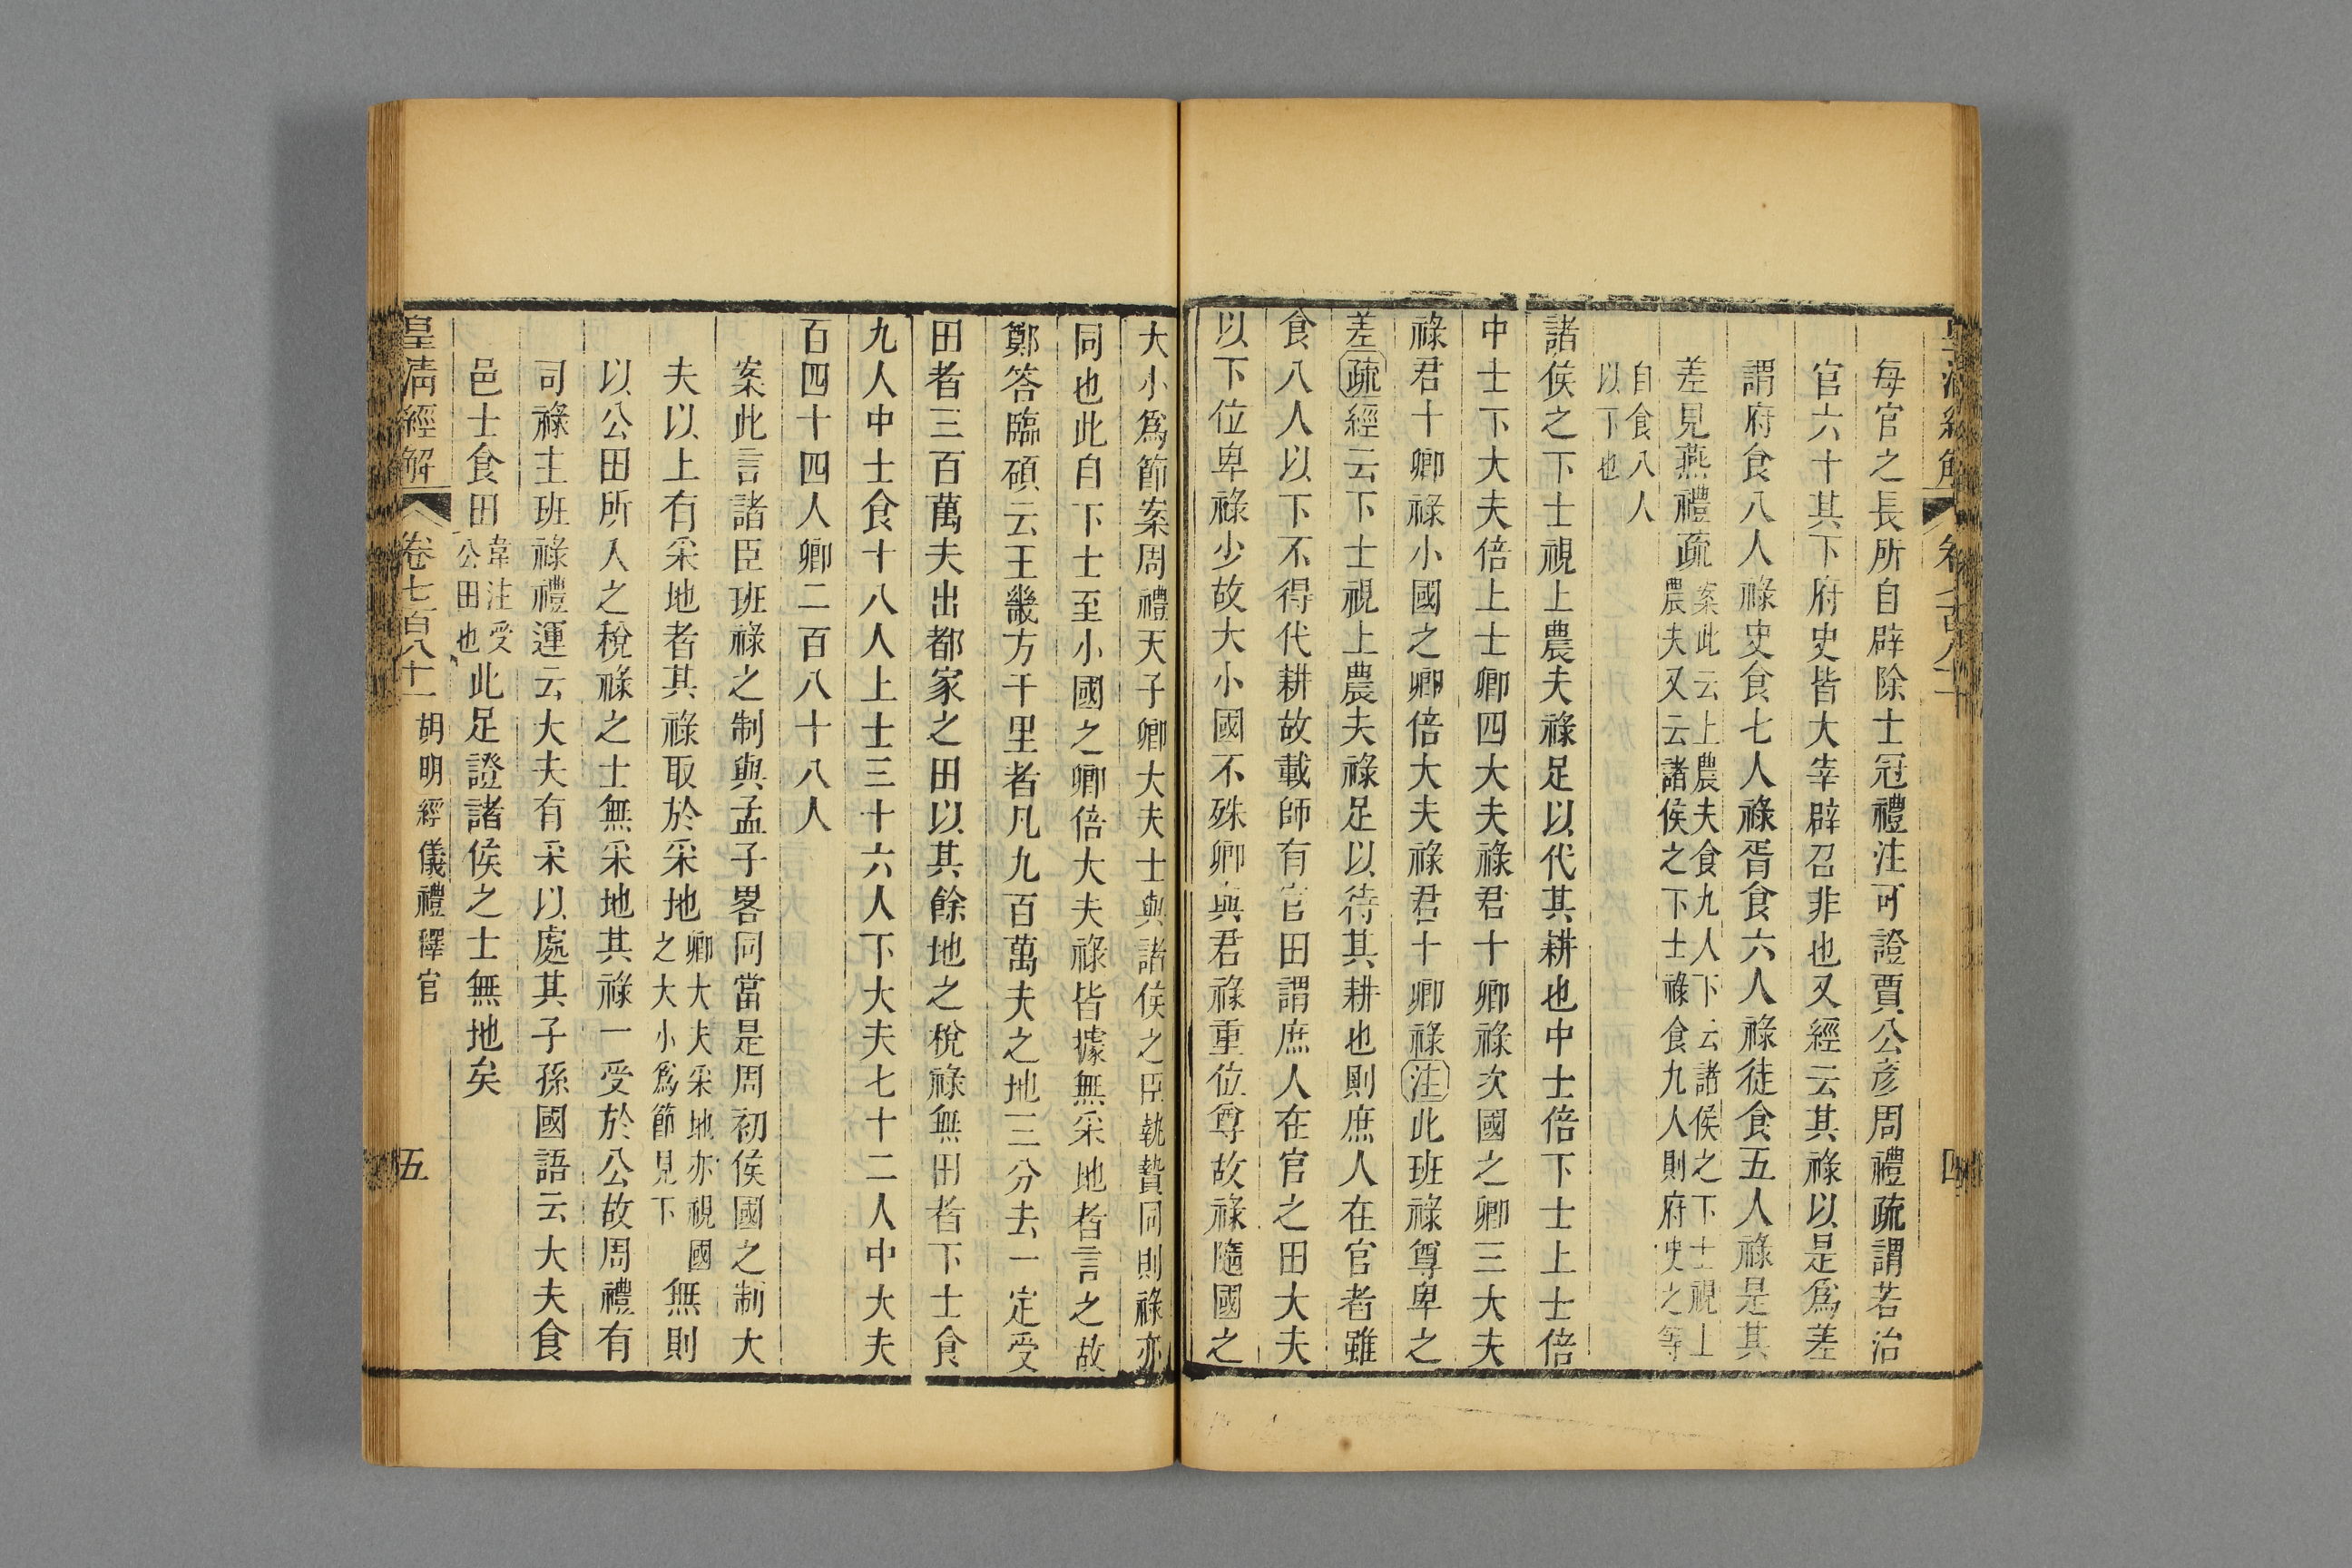 每官之長所自辟除士冠禮注可證賈公彥周禮疏謂若治
官六十其下府史皆大宰辟召非也又經云其祿以是爲差
謂府食八人祿史食七人祿胥食六人祿徒食五人祿是其
差見燕禮疏案此云上農夫食九人下云諸侯之下士視上
農夫又云諸侯之下士祿食九人則府史之等
自食八人
以下也
諸侯之下士視上農夫祿足以代其耕也中士倍下士上士倍
中士下大夫倍上士卿四大夫祿君十卿祿次國之卿三大夫
祿君十卿祿小國之卿倍大夫祿君十卿祿注此班祿尊卑之
差疏經云下士視上農夫祿足以待其耕也則庶人在官者雖
食八人以下不得代耕故載師有官田謂庶人在官之田大夫
以下位卑祿少故大小國不殊卿與君祿重位尊故祿隨國之
大小爲節案周禮天子卿大夫士與諸侯之臣執贄同則祿亦
同也此自下士至小國之卿倍大夫祿皆據無采地者言之故
鄭答臨碩云王畿方千里者凡九百萬夫之地三分去一定受
田者三百萬夫出都家之田以其餘地之稅祿無田者下士食
九人中士食十八人上士三十六人下大夫七十二人中大夫
百四十四人卿二百八十八人
案此言諸臣班祿之制與孟子畧同當是周初侯國之制大
夫以上有采地者其祿取於采地卿大夫采地亦視國
之大小爲節見下無則
以公田所人之稅祿之士無采地其祿一受於公故周禮有
司祿主班祿禮運云大夫有采以處其子孫國語云大夫食
邑士食田韋注受
公田也此足證諸侯之士無地矣
皇清經解 卷七百八十一 胡明經儀禮釋官 五